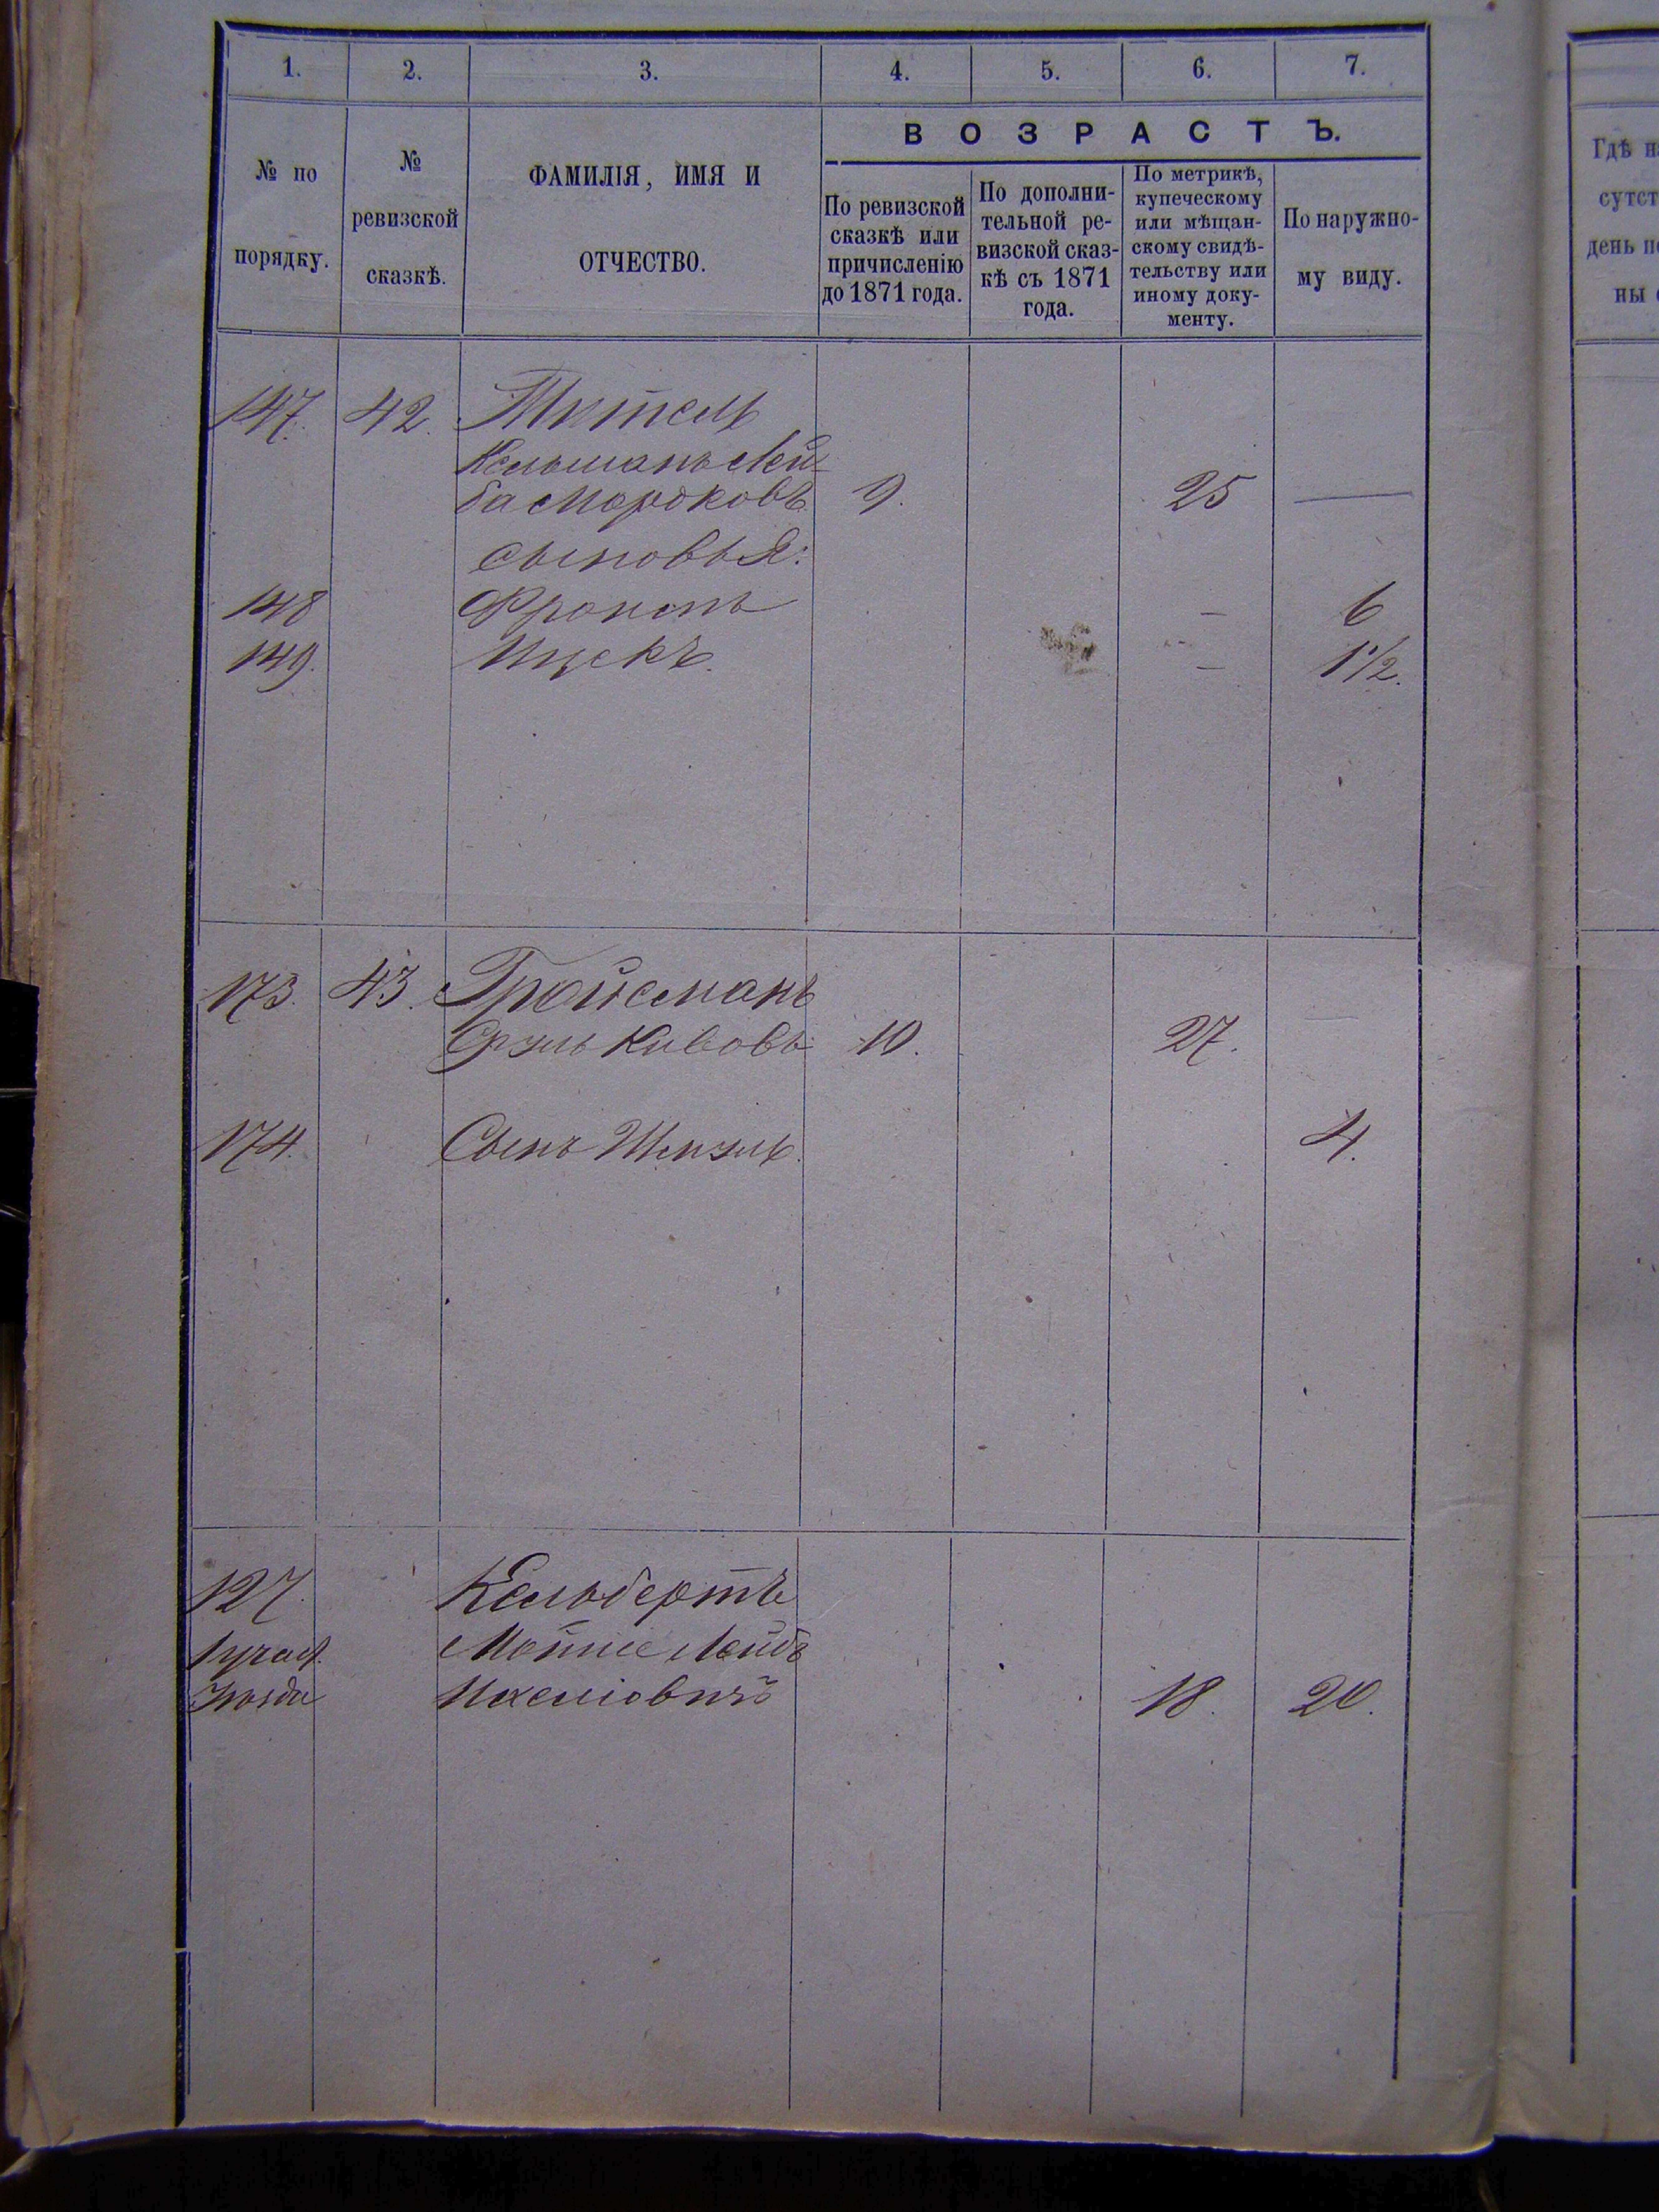 1. 2. 3. 4. 5. 6. 7.
№ по порядку.
№ ревизской сказкѣ.
ФАМИЛІЯ, ИМЯ И ОТЧЕСТВО.
ВОЗРАСТЪ.
По ревизской сказкѣ или причисленію до 1871 года.
По дополни-
тельной ре-
визской сказ-
кѣ съ 1871
года.
По метрикѣ,
купеческому
или мѣщан-
скому свидѣ-
тельству или
иному доку-
менту.
По наружно-
му виду.
Гдѣ н
сутст
день п
ны
147. 42. Титель
Кельманъ Лей-
ба Мордковъ 9. 25 —
сыновья:
148 Фроимъ — 6
149. Ицекъ. — 1 1/2.
173. 43. Гройсманъ
Срулъ Кивовъ 10. 27. —
174. Сынъ Шмуль. 4.
127. Кельбертъ
1 участ. Лейбъ
18. 20.